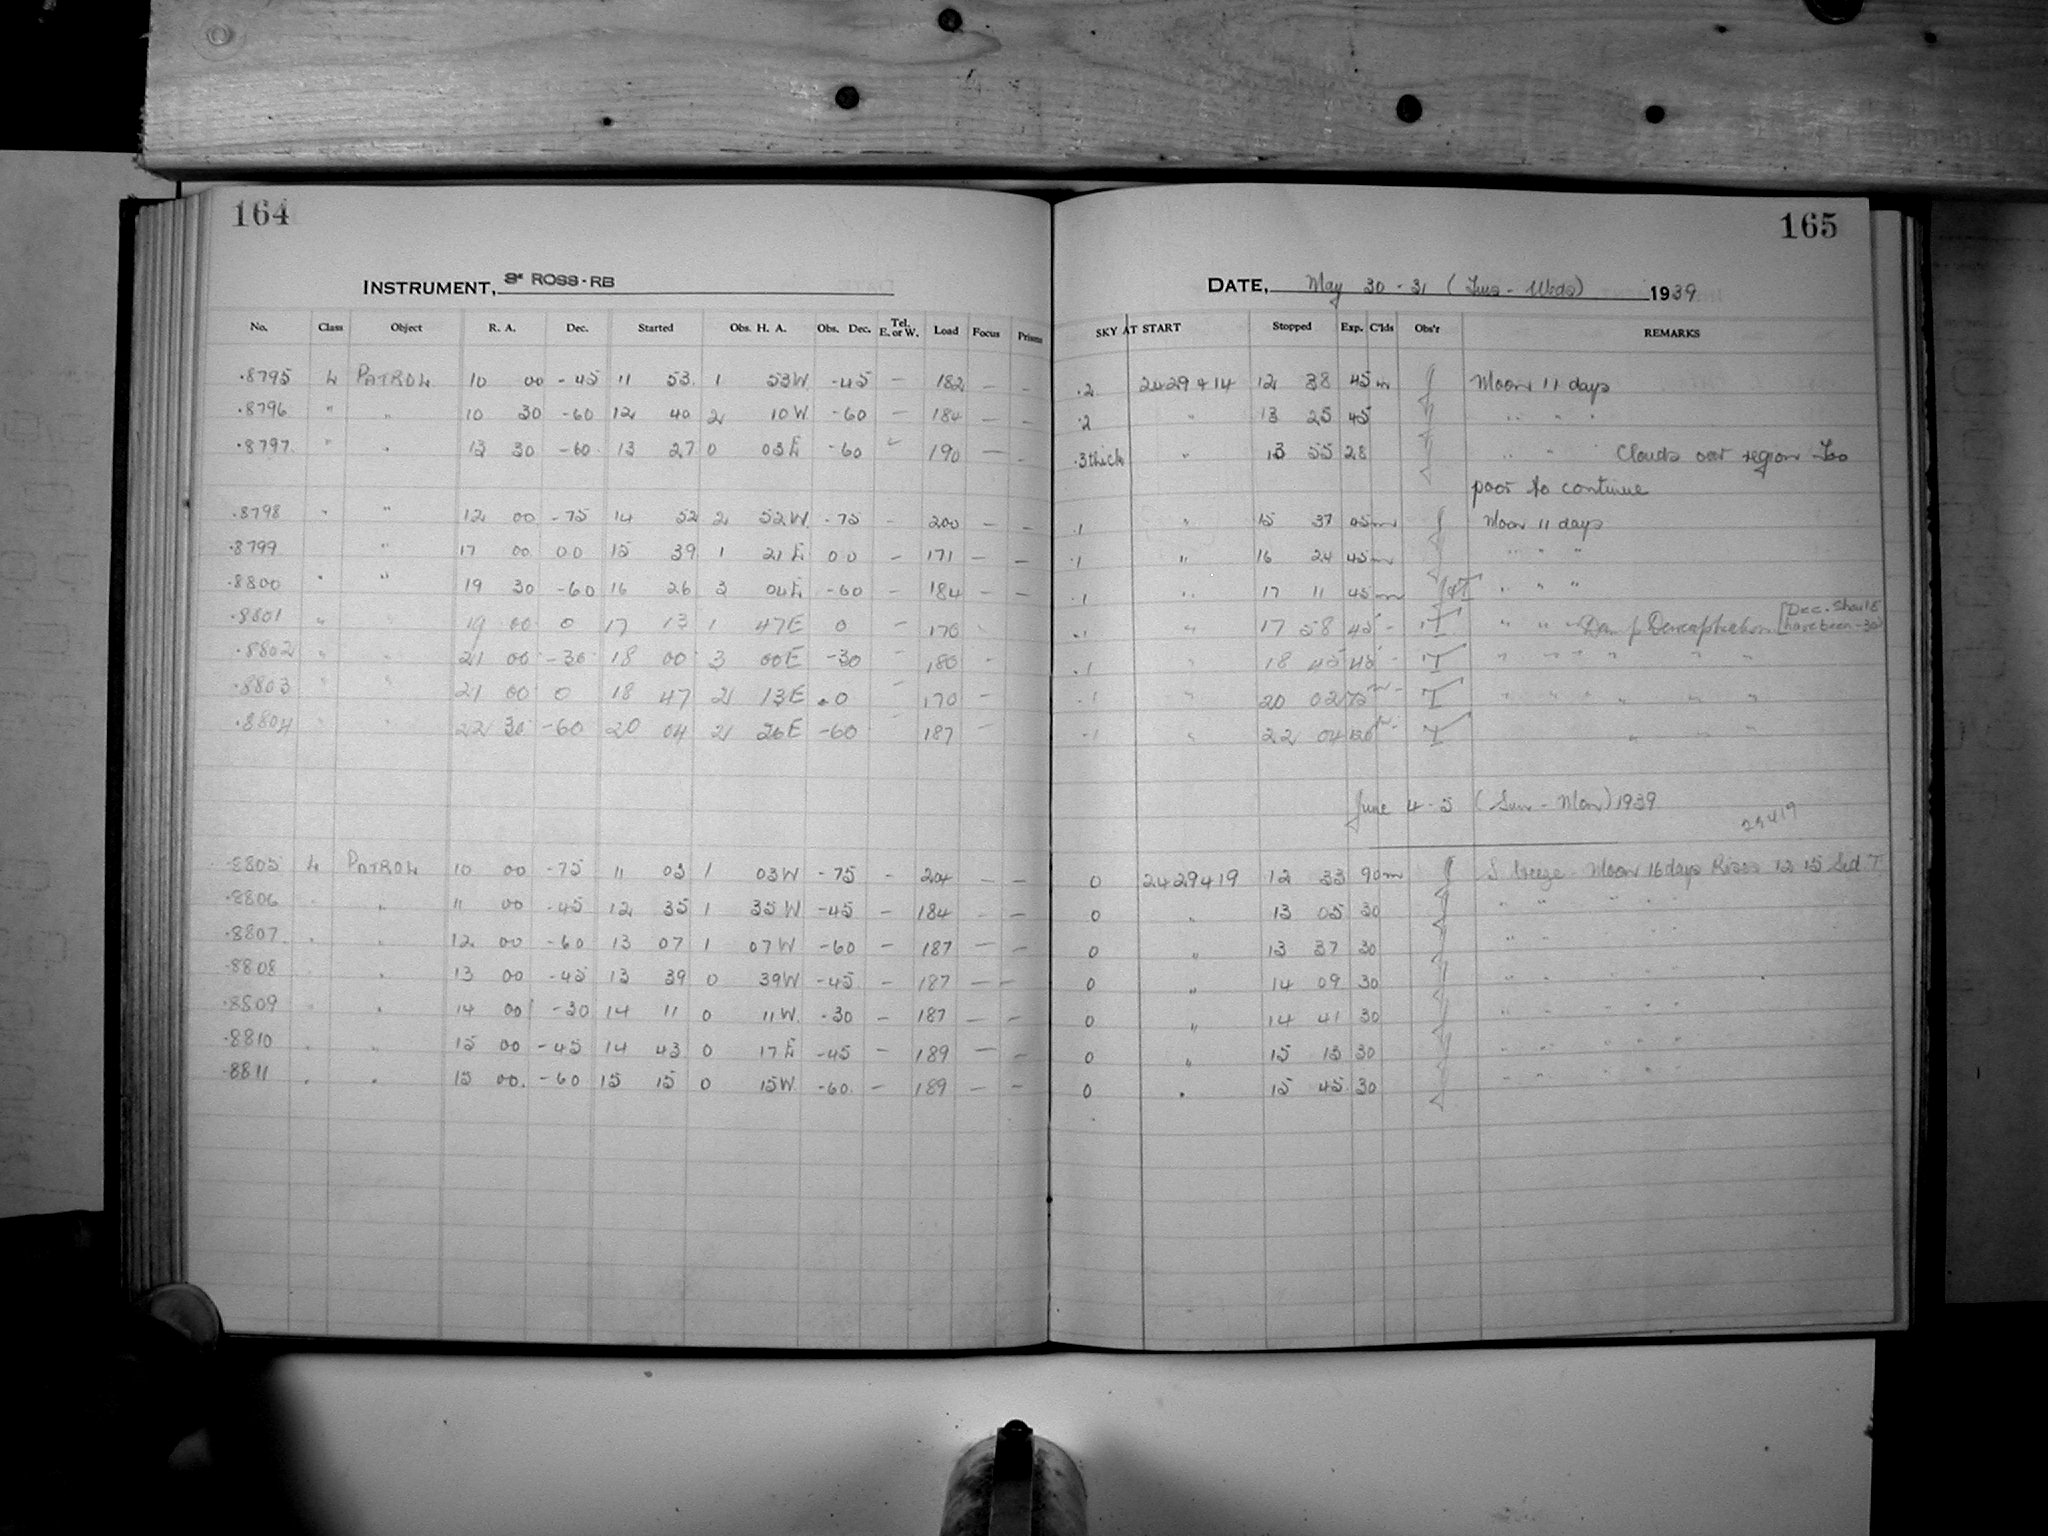 164
165
INSTRUMENT, 3" ROSS-RB
DATE, May 30-31 (Tues - Weds) 1939
No. Class Object R. A. Dec. Started Obs. H. A. Obs. Dec. Tel. E. or W. Load Focus Prisms SKY AT START Stopped Exp. C'lds Obs'r REMARKS
.8795 L PATROL 10 00 -45 11 53 1 53W -45 - 182 - - .2 2429414 12 38 45m J Moon 11 days
.8796 " " 10 30 -60 12 40 2 10W -60 - 184 - - .2 " 13 25 45 " " "
.8797 " " 13 30 -60 13 27 0 03E -60 - 190 - - .3 thick " 13 55 28 " " " Clouds over region Too
poor to continue
.8798 " " 12 00 -75 14 52 2 52W -75 - 200 - - .1 " 15 37 45m J Moon 11 days
.8799 " 17 00 00 15 39 1 21E 00 - 171 - - .1 " 16 24 45m " " "
.8800 " " 19 30 -60 16 26 3 04E -60 - 184 - - .1 " 17 11 45m J&T " " "
.8801 " " 19 00 0 17 13 1 47E 0 - 170 - .1 " 17 58 45 - T " " " [Dec. Should
have been -30]
.8802 " " 21 00 -30 18 00 3 00E -30 - 180 - .1 " 18 45 45 - T " " " " " "
.8803 " " 21 00 0 18 47 2 13E 0 - 170 - .1 " 20 02 75m - T " " " " " "
.8804 " " 22 30 -60 20 04 2 26E -60 - 187 - .1 " 22 04 120m - T " " "
June 4-5 (Sun - Mon) 1939
29419
.8805 L PATROL 10 00 -75 11 03 1 03W -75 - 204 - - 0 2429419 12 33 90m J S breeze - Moon 16 days Rises 12 15 Sid T
.8806 " 11 00 -45 12 35 1 35W -45 - 184 - - 0 " 13 05 30 " " " " "
.8807 " " 12 00 -60 13 07 1 07W -60 - 187 - - 0 " 13 37 30 " " " " "
.8808 " " 13 00 -45 13 39 0 39W -45 - 187 - - 0 " 14 09 30 " " " " "
.8809 " " 14 00 -30 14 11 0 11W -30 - 187 - - 0 " 14 41 30 " " " " "
.8810 " " 15 00 -45 14 43 0 17E -45 - 189 - - 0 " 15 13 30 " " " " "
.8811 " " 15 00 -60 15 15 0 15W -60 - 189 - - 0 " 15 45 30 " " " " "